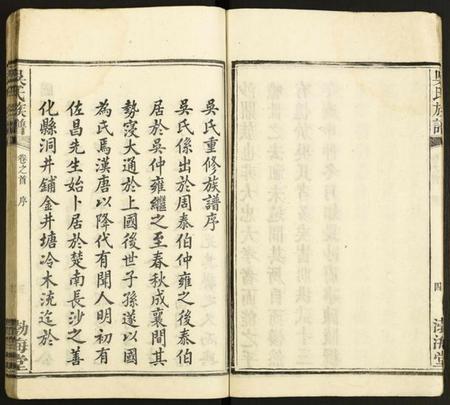 吳氏重修族譜序
吳氏係出於周泰伯仲雍之後泰伯
居於吳仲雍繼之至春秋成襄間其
勢寖大通於上國後世子孫遂以國
為氏焉漢唐以降代有聞人明初有
佐昌先生始卜居於楚南長沙之善
化縣洞井鋪金井塘冷木沇迄於
吳氏族譜
卷之首 序
渤海堂
吳氏族譜
四
渤海堂